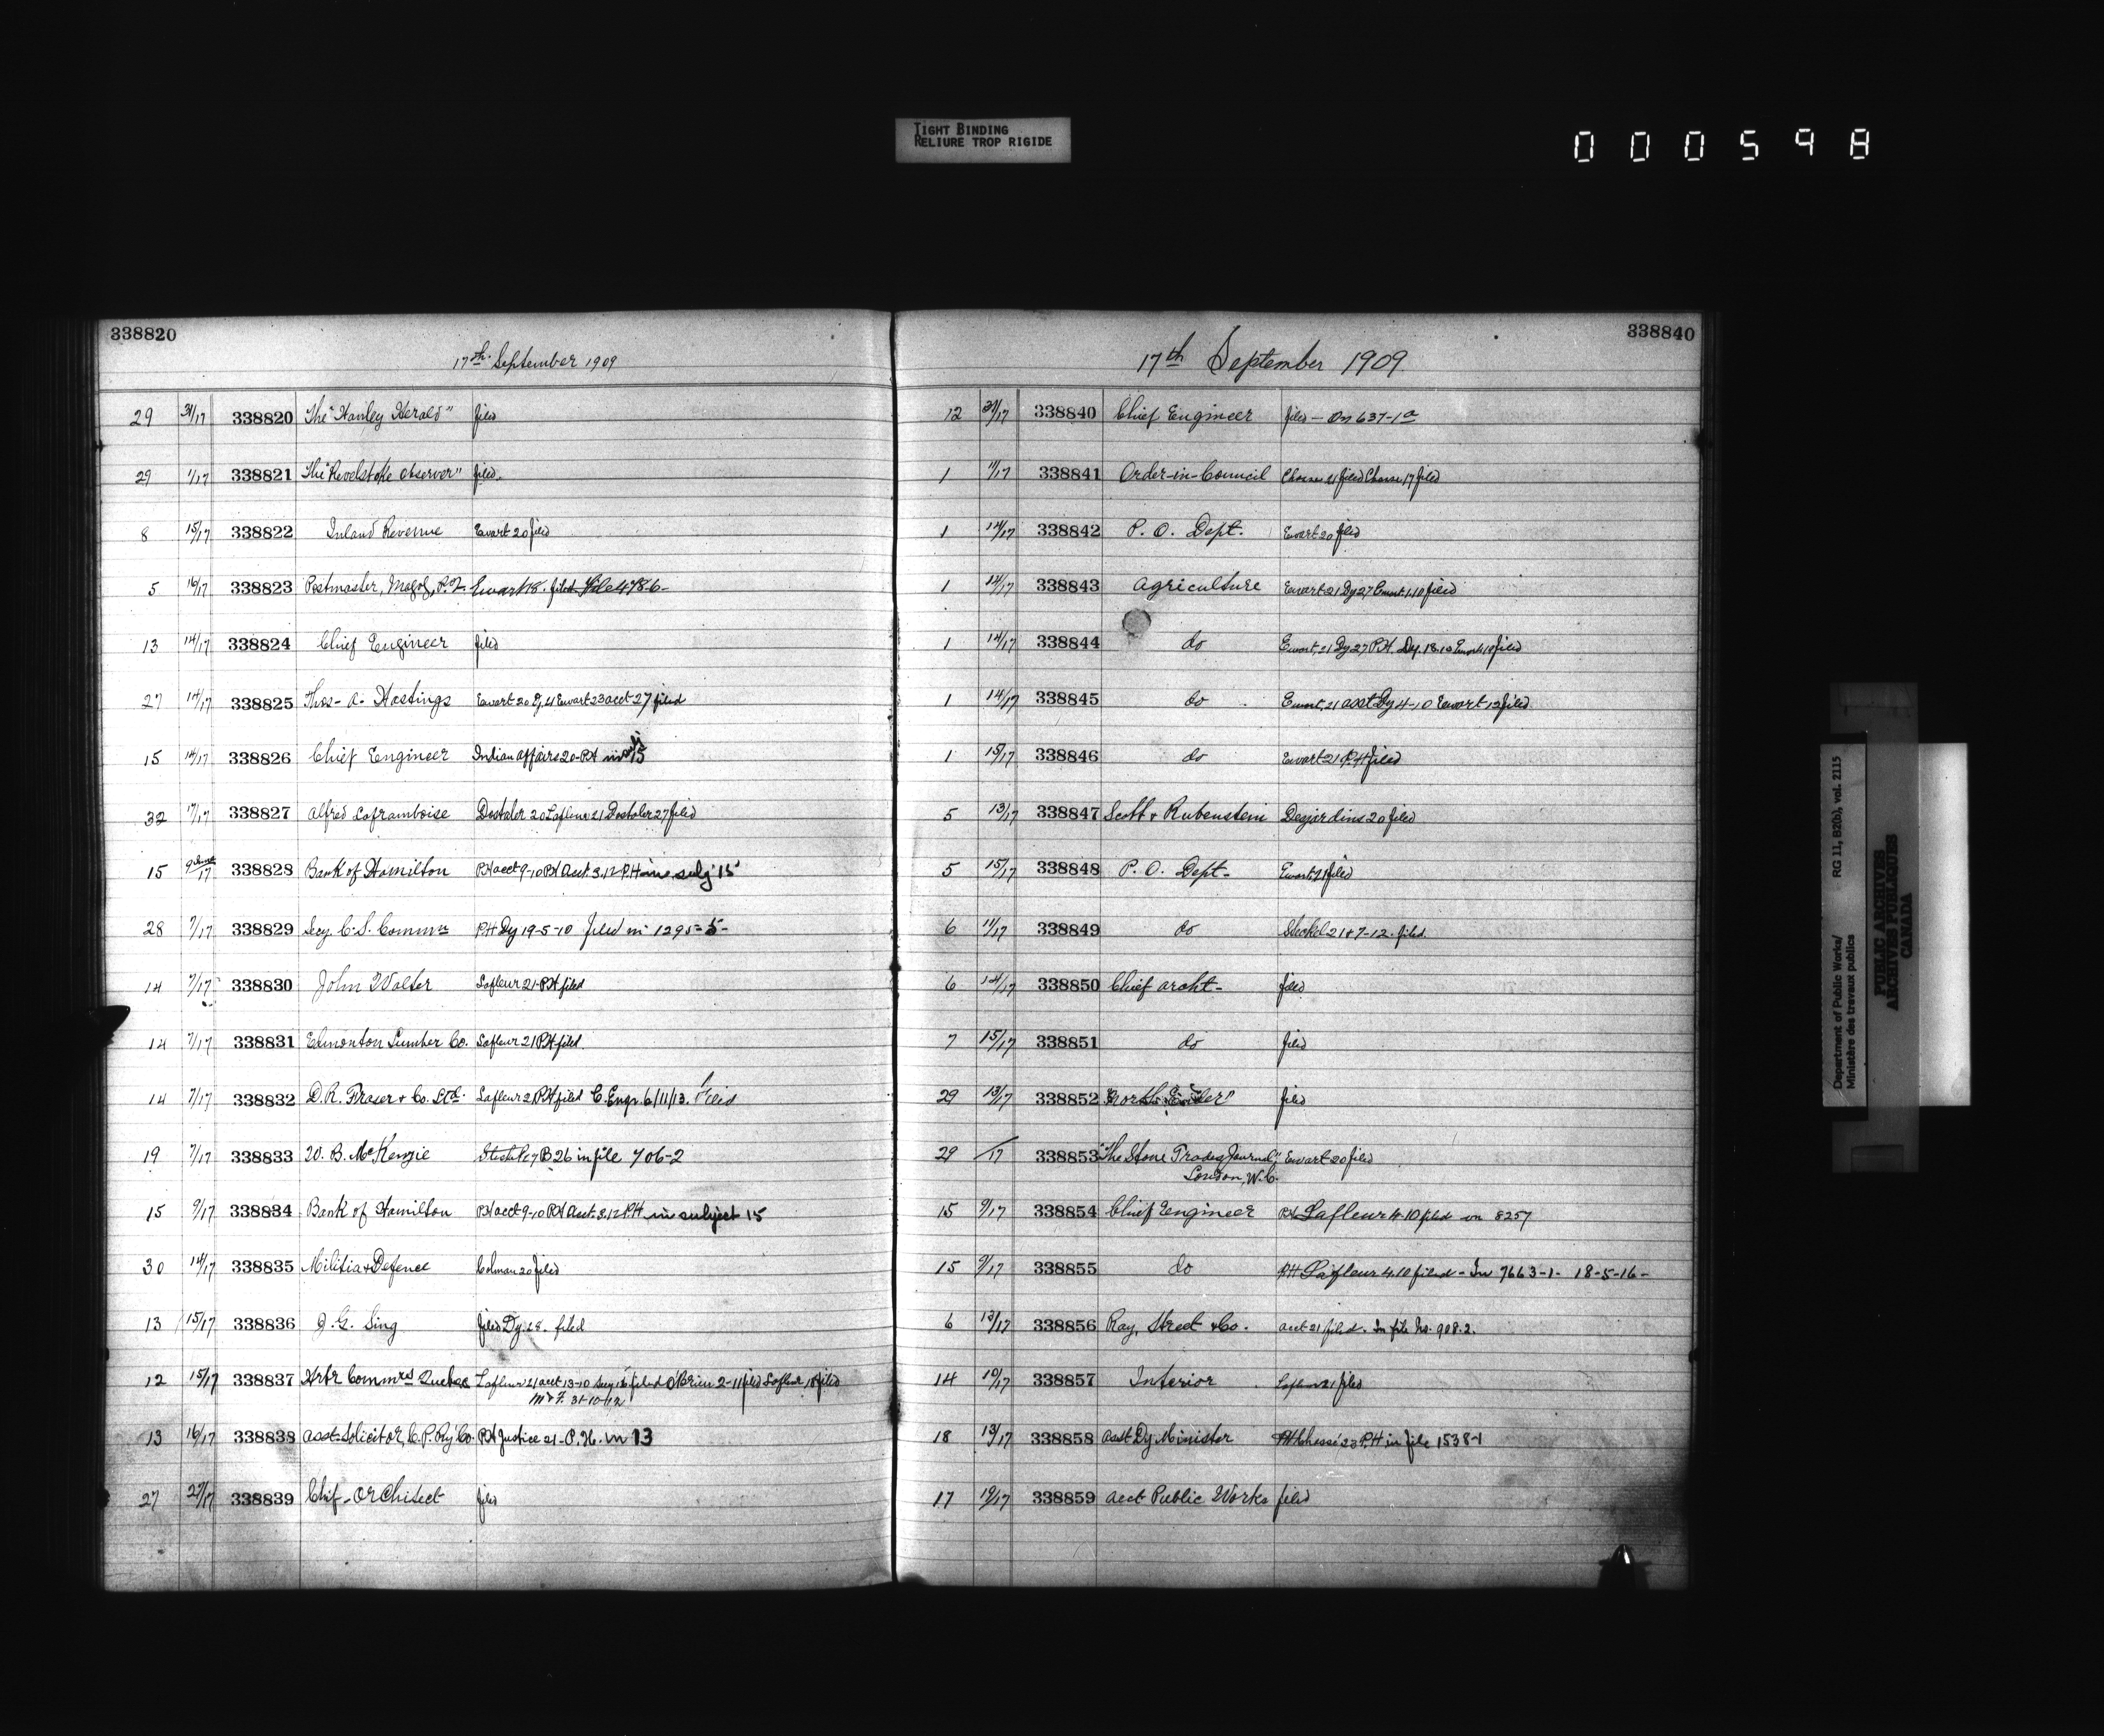 TIGHT BINDING
RELIURE TROP RIGIDE
000598
338820
17th September 1909
29 31/17 338820 The "Hanley Herald" filed
29 1/17 338821 The "Revelstoke Observer" filed.
8 15/17 338822 Inland Revenue Ewart 20 filed
5 16/17 338823 Postmaster, Magog, P.Q. Ewart 18. filed File 4786-
13 14/17 338824 Chief Engineer filed
27 14/17 338825 Thos. A. Hastings Ewart 20 Dy 21 Ewart 23 acct 27 filed
15 14/17 338826 Chief Engineer Indian Affairs 20-PH in 15
32 17/17 338827 Alfred Laframboise Dostaler 20 Lafleur 21 Dostaler 27 filed
15 17 338828 Bank of Hamilton PH acct 9-10 PH Acct 3.12 P.H in subj 15
28 7/17 338829 Secy. C. S. Commrs PH Dy 19-5-10 filed in 1295-5-
14 7/17 338830 John Walter Lafleur 21-PH filed
14 7/17 338831 Edmonton Lumber Co. Lafleur 21 PH filed.
14 7/17 338832 D. R. Fraser & Co. Ltd. Lafleur 21 PH filed C. Engr. 6/11/13. Filed
19 7/17 338833 W. B. McKenzie B 26 in file 706-2
15 9/17 338834 Bank of Hamilton PH acct 9-10 PH Acct 3.12 P.H in subject 15
30 14/17 338835 Militia & Defence Colman 20 filed
13 15/17 338836 J. G. Sing filed Dy. 28. filed
12 15/17 338837 Hrbr Commrs Quebec Lafleur 21 acct 13-10 Secy 16 filed O'Brien 2-11 filed Lafleur 18 filed
M & F. 31-10-12
13 16/17 338838 Asst. Solicitor, C. P. Ry Co. PH Justice 21-P.H. in 13
27 27/17 338839 Chief Architect filed
338840
17th September 1909
12 31/17 338840 Chief Engineer filed - On 637-1a
1 11/17 338841 Order-in-Council Chasse 21 filed Chasse 17 filed
1 14/17 338842 P. O. Dept. Ewart 20 filed
1 14/17 338843 Agriculture Ewart 21 Dy 27 Ewart 1.10 filed
1 14/17 338844 do Ewart, 21 Dy 27 P.H. Dy. 18.10 Ewart filed
1 14/17 338845 do Ewart, 21 asst Dy 4-10 Ewart 12 filed
1 15/17 338846 do Ewart 21 P.H filed
5 13/17 338847 Scott & Rubenstein Desjardins 20 filed
5 15/17 338848 P. O. Dept. Ewart 21 filed
6 11/17 338849 do Steckel 21 & 7-12. filed.
6 14/17 338850 Chief Archt. filed
7 15/17 338851 do filed
29 13/17 338852 "North Ender" filed
29 /17 338853 "The Stone Trades Journal," Ewart 20 filed
London, W. C.
15 9/17 338854 Chief Engineer PH Lafleur 4-10 filed on 8257
15 9/17 338855 do PH Lafleur 4.10 filed - In 7663-1- 18-5-16-
6 13/17 338856 Ray, Street & Co. acct 21 filed. In file No. 908.2.
14 10/17 338857 Interior Lafleur 21 filed
18 13/17 338858 Asst Dy Minister PH Chassé 23 P.H in file 1538-1
17 19/17 338859 Acct Public Works filed
Department of Public Works/ RG 11, B2(b), vol. 2115
Ministère des travaux publics
PUBLIC ARCHIVES
ARCHIVES PUBLIQUES
CANADA